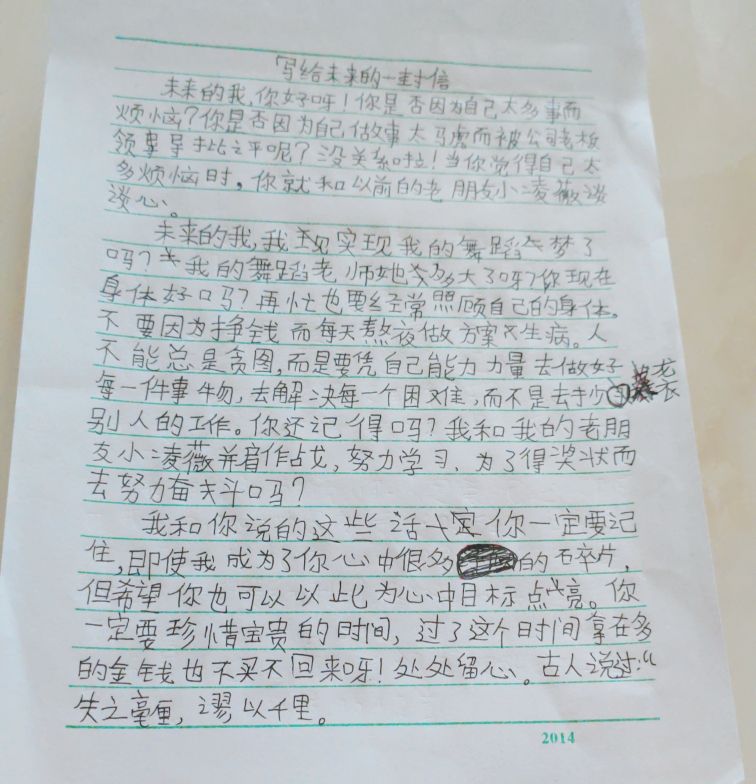 写给未来的一封信
未来的我,你好呀!你是否因为自己太多事而
烦恼?你是否因为自己做事太马虎而被公司老板
领导批评呢?没关系啦!当你觉得自己太
多烦恼时,你就和以前的老朋友小凌薇谈
谈心。
未来的我,我实现我的舞蹈梦了
吗?我的舞蹈老师她多大了呀?你现在
身体好吗?再忙也要经常照顾自己的身体。
不要因为挣钱而每天熬夜做方案生病。人
不能总是贪图,而是要凭自己能力力量去做好
每一件事物,去解决每一个困难,而不是去抄袭
别人的工作。你还记得吗?我和我的老朋
友小凌薇并肩作战,努力学习,为了得奖状而
去努力奋斗吗?
我和你说的这些话你一定要记
住,即使我成为了你心中很多的碎片,
但希望你也可以以此为心中目标点亮。你
一定要珍惜宝贵的时间,过了这个时间拿在多
的金钱也不买不回来呀!处处留心。古人说过:“
失之毫厘,谬以千里。
2014